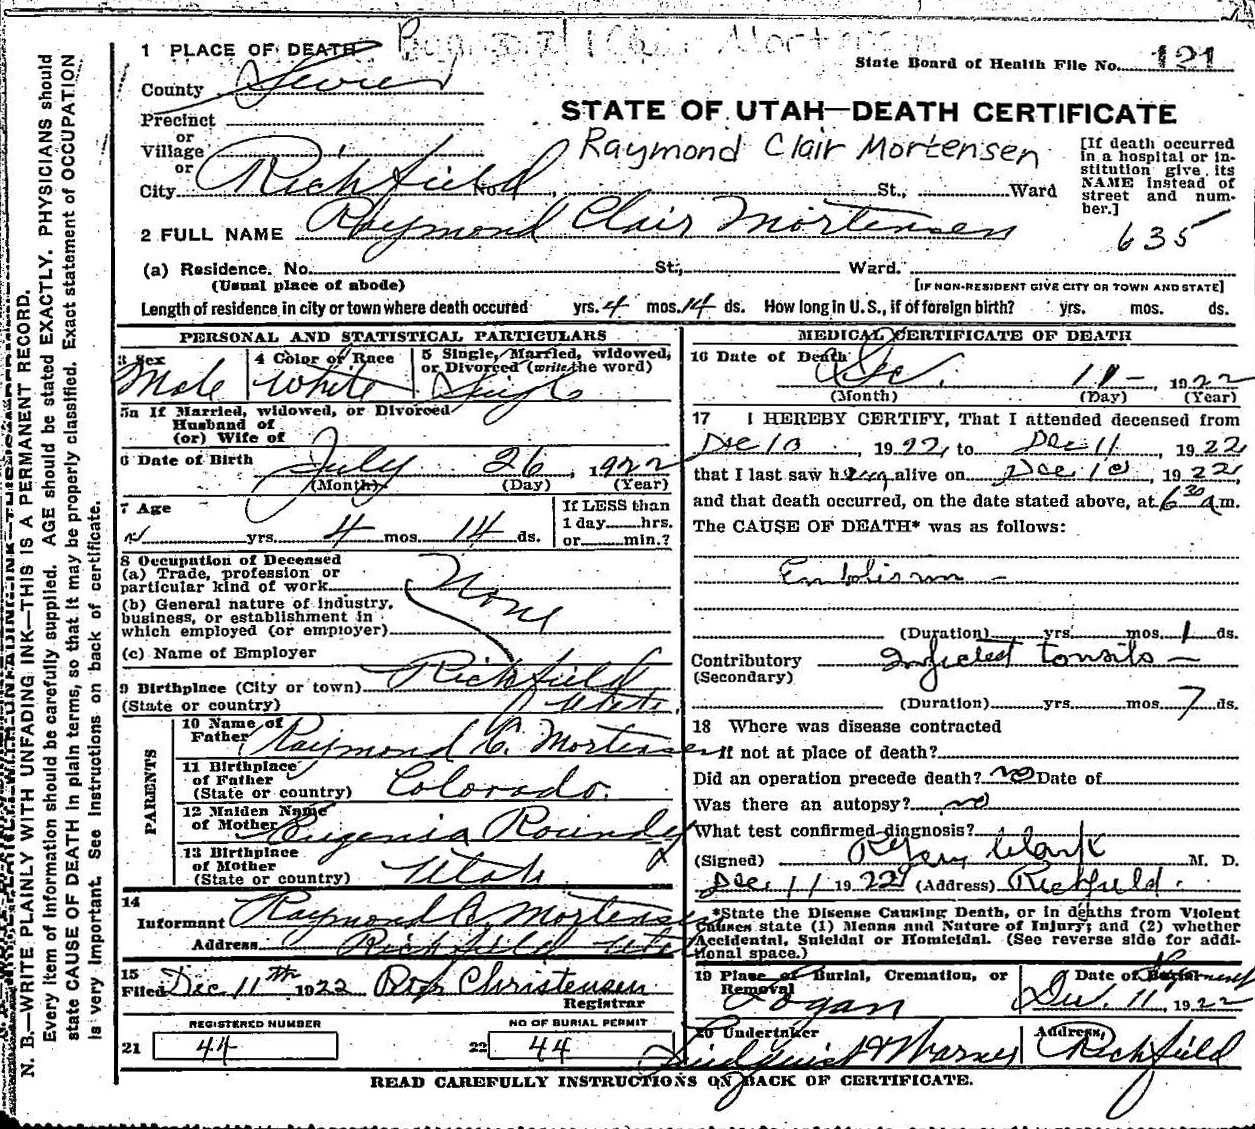 Raymond Clair Mortensen
1 PLACE OF DEATH
State Board of Health File No. 121
County Sevier
STATE OF UTAH—DEATH CERTIFICATE
Precinct
or
Village
Raymond Clair Mortensen
or
City Richfield No. St., Ward
[If death occurred in a hospital or institution give its NAME instead of street and number.]
635
2 FULL NAME Raymond Clair Mortensen
(a) Residence. No. St., Ward.
(Usual place of abode) [IF NON-RESIDENT GIVE CITY OR TOWN AND STATE]
Length of residence in city or town where death occured yrs. 4 mos. 14 ds. How long in U.S., if of foreign birth? yrs. mos. ds.
PERSONAL AND STATISTICAL PARTICULARS
3 Sex Male
4 Color or Race White
5 Single, Married, widowed, or Divorced (write the word) Single
5a If Married, widowed, or Divorced
Husband of
(or) Wife of
6 Date of Birth July 26, 1922
(Month) (Day) (Year)
7 Age yrs. 4 mos. 14 ds.
If LESS than
1 day hrs.
or min.?
8 Occupation of Deceased
(a) Trade, profession or
particular kind of work None
(b) General nature of industry,
business, or establishment in
which employed (or employer)
(c) Name of Employer
9 Birthplace (City or town) Richfield
(State or country) Utah
PARENTS
10 Name of
Father Raymond C. Mortensen
11 Birthplace
of Father
(State or country) Colorado.
12 Maiden Name
of Mother Eugenia Roundy
13 Birthplace
of Mother
(State or country) Utah
14
Informant Raymond C. Mortensen
Address Richfield Utah
15
Filed Dec 11th 1922 Christensen
Registrar
REGISTERED NUMBER
21 44
NO OF BURIAL PERMIT
22 44
MEDICAL CERTIFICATE OF DEATH
16 Date of Death Dec. 11 - , 1922
(Month) (Day) (Year)
17 I HEREBY CERTIFY, That I attended deceased from
Dec 10, 1922, to Dec 11, 1922
that I last saw him alive on Dec 10, 1922,
and that death occurred, on the date stated above, at 6 30 a m.
The CAUSE OF DEATH* was as follows:
Embolism -
(Duration) yrs. mos. 1 ds.
Contributory Infected tonsils -
(Secondary)
(Duration) yrs. mos. 7 ds.
18 Where was disease contracted
if not at place of death?
Did an operation precede death? no Date of
Was there an autopsy? no
What test confirmed diagnosis?
(Signed) Clark M. D.
Dec. 11 1922 (Address) Richfield.
*State the Disease Causing Death, or in deaths from Violent
Causes state (1) Menns and Nature of Injury; and (2) whether
Accidental, Suicidal or Homicidal. (See reverse side for addi-
tional space.)
19 Place of Burial, Cremation, or
Removal Logan
Date of Burial
Dec. 11, 1922
20 Undertaker
Lindquist & Warner
Address,
Richfield
READ CAREFULLY INSTRUCTIONS ON BACK OF CERTIFICATE.
N. B.—WRITE PLAINLY WITH UNFADING INK—THIS IS A PERMANENT RECORD.
Every item of information should be carefully supplied. AGE should be stated EXACTLY. PHYSICIANS should
state CAUSE OF DEATH in plain terms, so that it may be properly classified. Exact statement of OCCUPATION
is very important. See instructions on back of certificate.